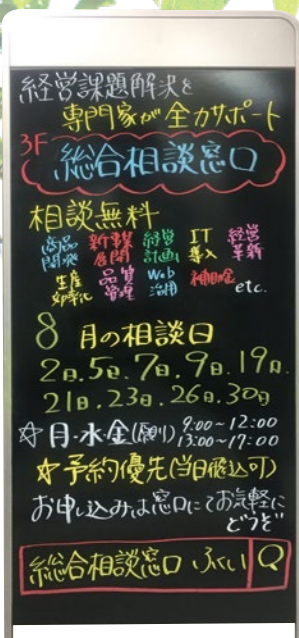 経営課題解決を
専門家が全力サポート
3F
総合相談窓口
相談無料
商品開発 新事業展開 経営計画 IT導入 経営革新
生産効率化 品質管理 Web活用 補助金 etc.
8月の相談日
2日.5日.7日.9日.19日.
21日.23日.26日.30日
☆月・水・金(原則) 9:00~12:00
13:00~17:00
☆予約優先(当日飛込可)
お申し込みは窓口にてお気軽に
どうぞ
総合相談窓口 ふくい Q